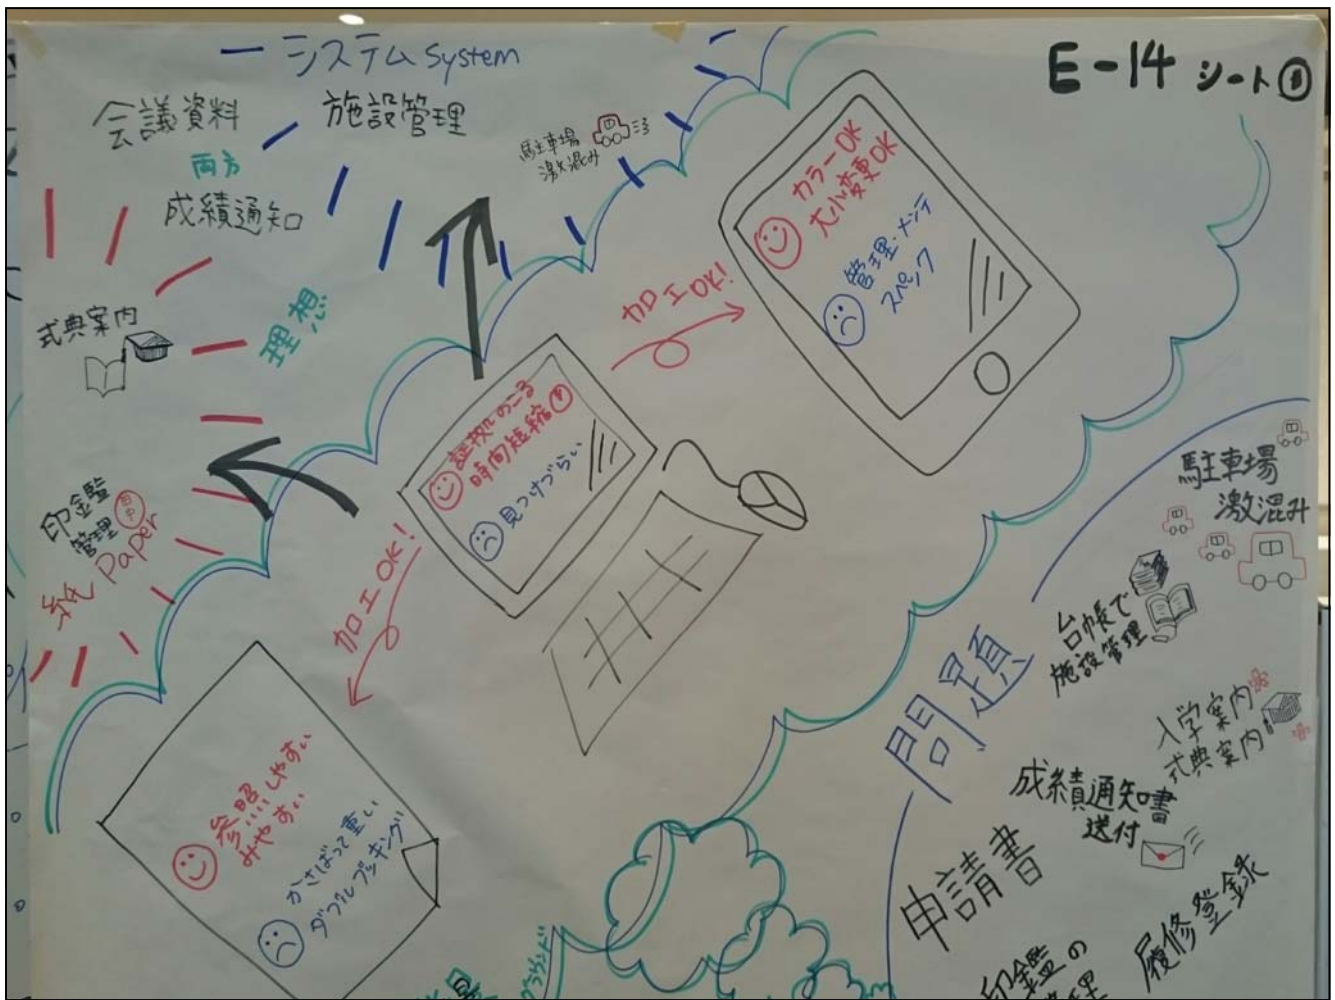 E-14 シート①
システム System
会議資料
施設管理
両方
成績通知
駐車場
激混み
式典案内
理想
印鑑
管理
紙 Paper
カラーOK
大小変更OK
管理・メンテ
スペック
加工OK!
証拠のこる
時間短縮
見つけづらい
加工OK!
参照しやすい
みやすい
かさばって重い
ダブルブッキング
問題
駐車場
激混み
台帳で
施設管理
入学案内
式典案内
成績通知書
送付
申請書
履修登録
印鑑の
管理